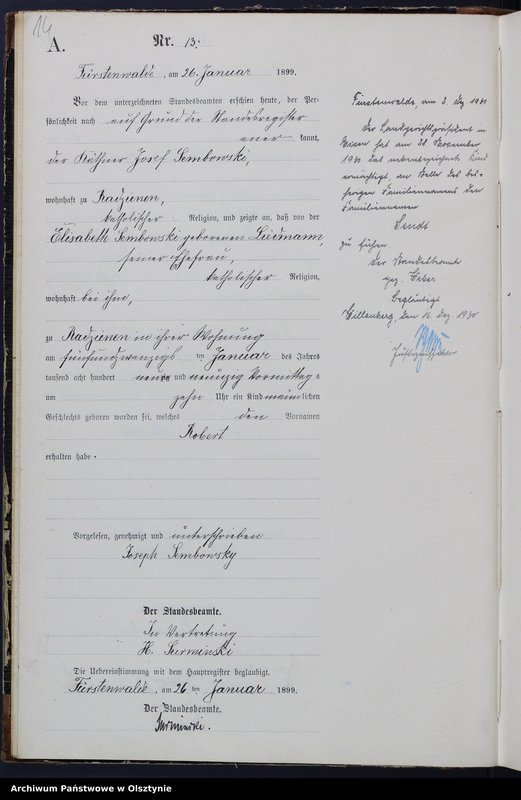 14
A.
Nr. 13.
Fürstenwalde, am 26. Januar 1899.
Vor dem unterzeichneten Standesbeamten erschien heute, der Per-
sönlichkeit nach auf Grund der Standesregister
kannt,
der Käthner Josef Sembowski,
wohnhaft zu Radzienen,
katholischer Religion, und zeigte an, daß von der
Elisabeth Sembowski geborenen
seiner Ehefrau,
katholischer Religion,
wohnhaft bei ihm,
zu Radzienen in ihrer Wohnung
am fünfundzwanzigs ten Januar des Jahres
tausend acht hundert neun und neunzig Vormittag s
um zehn Uhr ein Kind männlichen
Geschlechts geboren worden sei, welches den Vornamen
Robert
erhalten habe.
Vorgelesen, genehmigt und unterschrieben
Joseph Sembowsky
Der Standesbeamte.
In Vertretung
H. Surminski
Die Uebereinstimmung mit dem Hauptregister beglaubigt.
Fürstenwalde, am 26 ten Januar 1899.
Der Standesbeamte.
Surminski.
Fürstenwalde, am 2. Dez 1930
Der Landgerichtspräsident in
hat am 28. November
1930 das nebenbezeichnete Kind
ermächtigt, an Stelle des bis-
herigen Familiennamens den
Familiennamen
zu führen.
Der Standesbeamte
gez. Weber
Beglaubigt
Willenberg, den 16. Dez. 1930
Archiwum Państwowe w Olsztynie